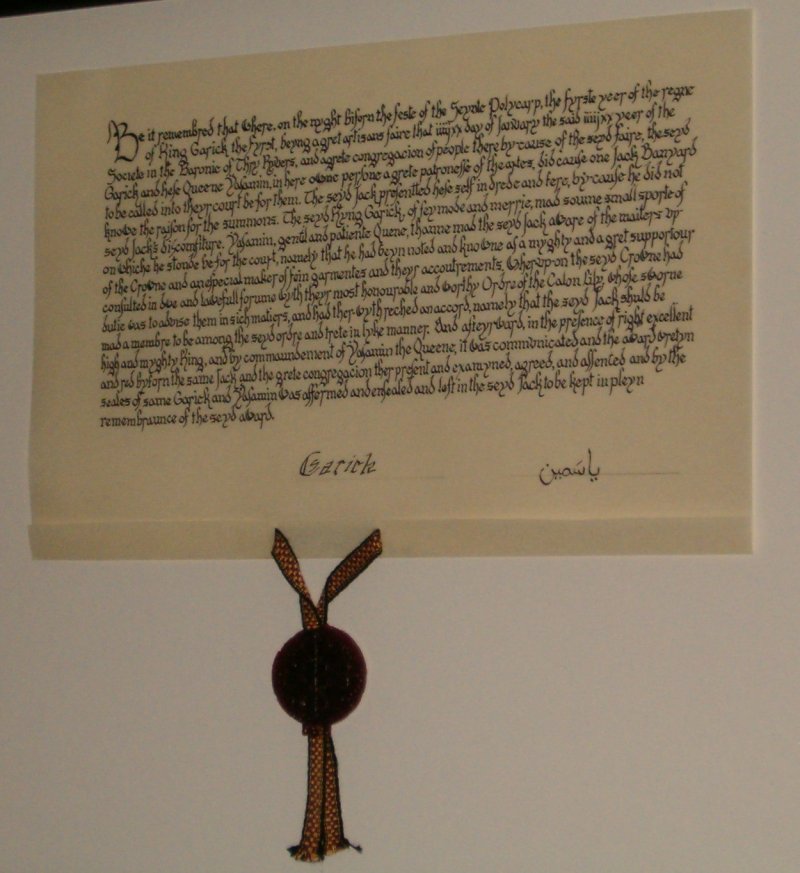 Be it remembred that Where, on the nyght biforn the feste of the Seynte Polycarp, the fyrste yeer of the regne
of King Garick the fyrst, beyng a gret artisans faire that iiijxx day of January the said iiijxx yeer of the
Societe in the Baronie of Thry Ryders, and a grete congregacion of people there by-cause of the seyd faire, the seyd
Garick and hese Queene Yasamin, in here owne persone a grete patronesse of the artes, did cause one Jack Banyard
to be called into theyr court be for them. The seyd Jack presentted hese self in drede and fere, by-cause he did not
knowe the raison for the summons. The seyd Kyng Garick, of sey mode and merrie, mad soume small sporte of
seyd Jack's discomfiture. Yasamin, gentil and patiente Quene, thanne mad the seyd Jack aware of the maiters vp-
on whiche he stonde be for the court, namely that he had beyn noted and knowne as a myghty and a gret supportour
of the Crowne and an especial maker of fein garmentes and theyr accoutrements. Wher-vp-on the seyd Crowne had
consulted in dve and lawefull forume wyth theyr most honourable and worthy Ordre of the Calon Lily, whose sworne
dutie was to advise them in sich matiers, and had ther-wyth reched an accord, namely that the seyd Jack shuld be
mad a membre to be among the seyd ordre and trete in lyke manner. And afteyrward, in the presence of right excellent
high and myghty King, and by commaundement of Yasamin the Queene, it was communicated and the award wretyn
and red byforn the same Jack and the grete congregacion ther present and examyned, agreed, and assented and by the
seales of same Garick and Yasamin was affermed and ensealed and left in the seyd Jack to be kept in pleyn
remembraunce of the seyd award.
Garick
ياسمين